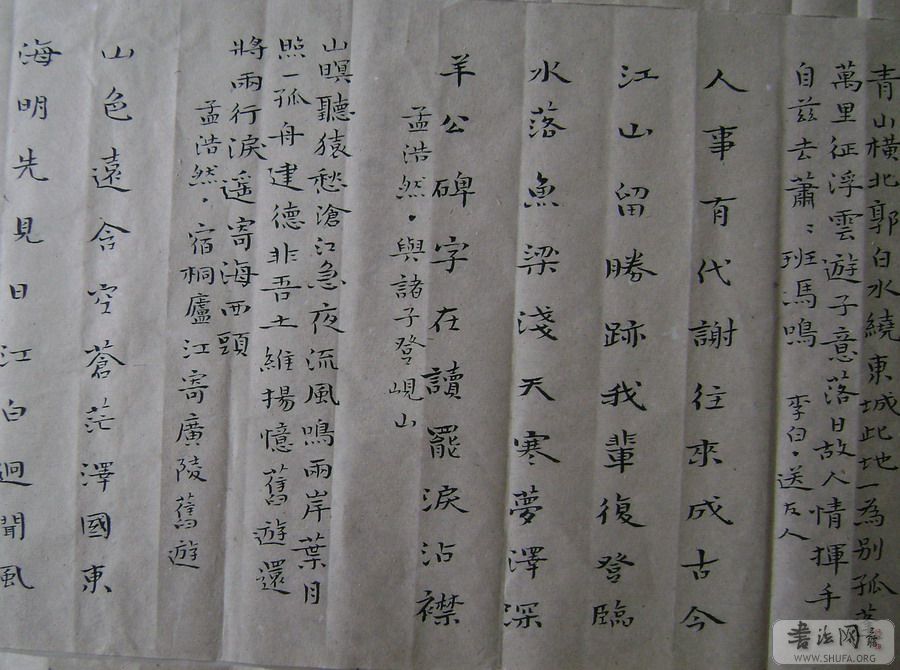 青山橫北郭白水繞東城此地一為別孤蓬
萬里征浮雲遊子意落日故人情揮手
自茲去蕭〻班馬鳴 李白·送友人
人事有代謝往來成古今
江山留勝跡我輩復登臨
水落魚梁淺天寒夢澤深
羊公碑字在讀罷淚沾襟
孟浩然·與諸子登峴山
山暝聽猿愁滄江急夜流風鳴兩岸葉月
照一孤舟建德非吾土維揚憶舊遊還
將兩行淚遥寄海西頭
孟浩然·宿桐廬江寄廣陵舊遊
山色遠含空蒼茫澤國東
海明先見日江白迥聞風
書法网
WWW.SHUFA.ORG